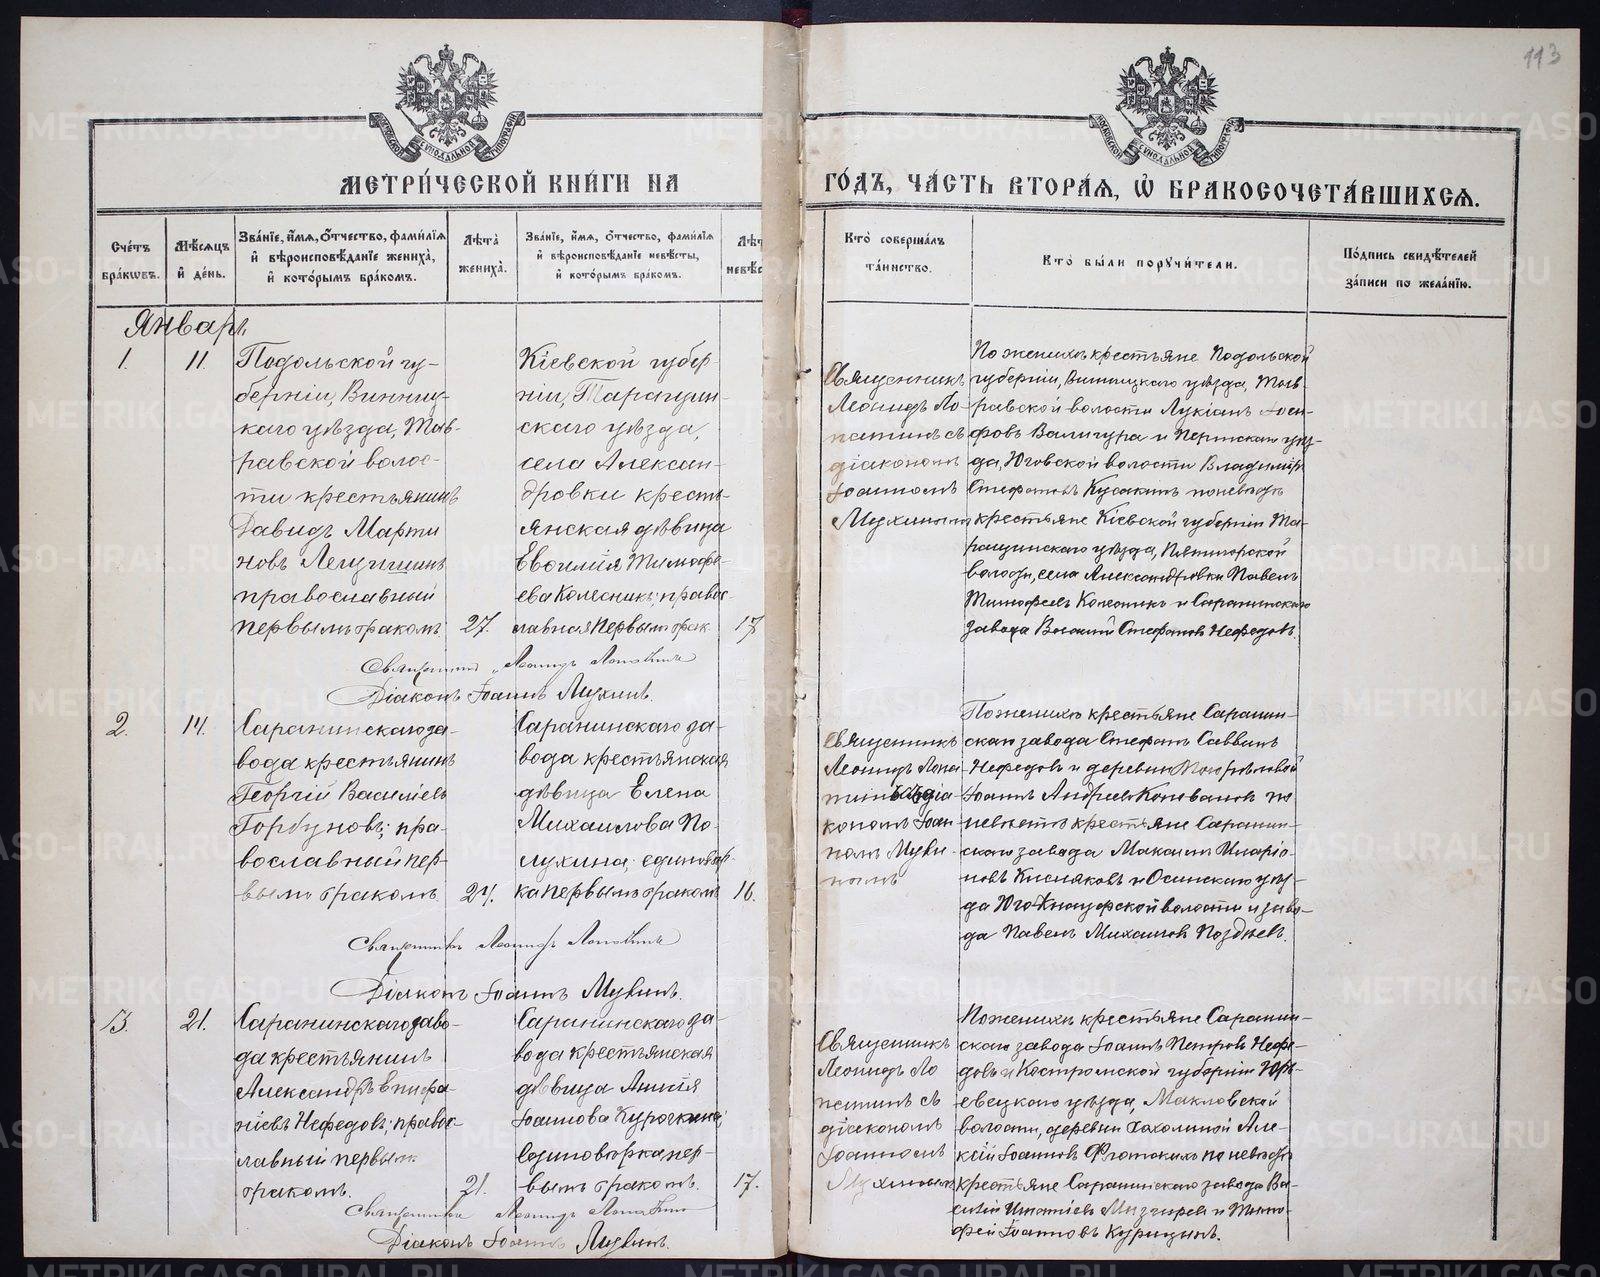 113
МОСКОВСКОЙ СѴНОДАЛЬНОЙ ТИПОГРАФІИ
МОСКОВСКОЙ СѴНОДАЛЬНОЙ ТИПОГРАФІИ
МЕТРИ́ЧЕСКОЙ КНИ́ГИ НА
ГО́ДЪ, ЧА́СТЬ ВТОРА́Я, Ѡ҆ БРАКОСОЧЕТА́ВШИХСЯ.
Сче́тъ бра́кѡвъ.
Мѣ́сяцъ и҆ де́нь.
Зва́нїе, и҆́мя, ѻ҆́тчество, фами́лїя и҆ вѣроисповѣ́данїе жениха̀, и҆ кото́рымъ бра́комъ.
Лѣ́та жениха̀.
Зва́нїе, и҆́мя, ѻ҆́тчество, фами́лїя и҆ вѣроисповѣ́данїе невѣ́сты, и҆ кото́рымъ бра́комъ.
Лѣ́т
невѣ́с
Кто̀ соверша́лъ та́инство.
Кто̀ бы́ли поручи́тели.
По́дпись свидѣ́телей за́писи по жела́нїю.
Январь
1.
11.
Подольской гу-
берніи, Винниц-
каго уѣзда, Тыв-
равской волос-
ти крестьянинъ
Давидъ Марти
новъ
православный
первымъ бракомъ
27.
Кіевской губер
ніи, Таращан-
скаго уѣзда,
села Алексан-
дровки кресть-
янская дѣвица
Евфимія Тимофе-
ева Колесникъ; правос-
лавная первымъ брак.
17
Священникъ
Леонидъ Ло-
патинъ съ
діакономъ
Іоанномъ
Мухинымъ
По женихѣ крестьяне Подольской
губерніи, Винницкаго уѣзда, Тыв-
равской волости Лукіанъ Іоси-
фовъ Валигура и Пермскаго уѣз-
да, Юговской волости Владиміръ
Стефановъ Кусакинъ по невѣстѣ
крестьяне Кіевской губерніи Та-
ращанскаго уѣзда, Пятигорской
волости, села Александровки Павелъ
Тимофеевъ Колесникъ и Саранинскаго
завода Василій Стефановъ Нефедовъ.
Священникъ Леонидъ Лопатинъ
Діаконъ Іоаннъ Мухинъ.
2.
14.
Саранинскаго за-
вода крестьянинъ
Георгій Василіевъ
Горбуновъ; пра-
вославный пер-
вымъ бракомъ.
24.
Саранинскаго за-
вода крестьянская
дѣвица Елена
Михаилова По-
лухина; единовѣр-
ка первымъ бракомъ
16.
Священникъ
Леонидъ Лопа-
тинъ съ діа-
кономъ Іоан-
номъ Мухи-
нымъ
По женихѣ крестьяне Саранин-
скаго завода Стефанъ Саввинъ
Нефедовъ и деревни
Іоаннъ Андреевъ Коноваловъ по
невѣстѣ крестьяне Саранин-
скаго завода Максимъ Иларіо-
новъ Кисляковъ и Осинскаго уѣз-
да Юго-Кнауфской волости и заво-
да Павелъ Михаиловъ Поздѣевъ.
Священникъ Леонидъ Лопатинъ
Діаконъ Іоаннъ Мухинъ.
3.
21.
Саранинскаго заво-
да крестьянинъ
Александръ Епифа-
ніевъ Нефедовъ; правос-
лавный первымъ
бракомъ.
21.
Саранинскаго за-
вода крестьянская
дѣвица Анисія
Іоаннова Курочкина;
Единовѣрка пер-
вымъ бракомъ.
17.
Священникъ
Леонидъ Ло
патинъ съ
діакономъ
Іоанномъ
Мухинымъ
По женихѣ крестьяне Саранин-
скаго завода Іоаннъ Петровъ Нефе-
довъ и Костромской губерніи Юрь-
евецкаго уѣзда, Макловской
волости, деревни Але-
ксій Іоанновъ по невѣстѣ
крестьяне Саранинскаго завода Ва-
силій Игнатіевъ Мизгиревъ и Тимо-
фей Іоанновъ Курицынъ.
Священникъ Леонидъ Лопатинъ
Діаконъ Іоаннъ Мухинъ.
METRIKI.GASO-URAL.RU